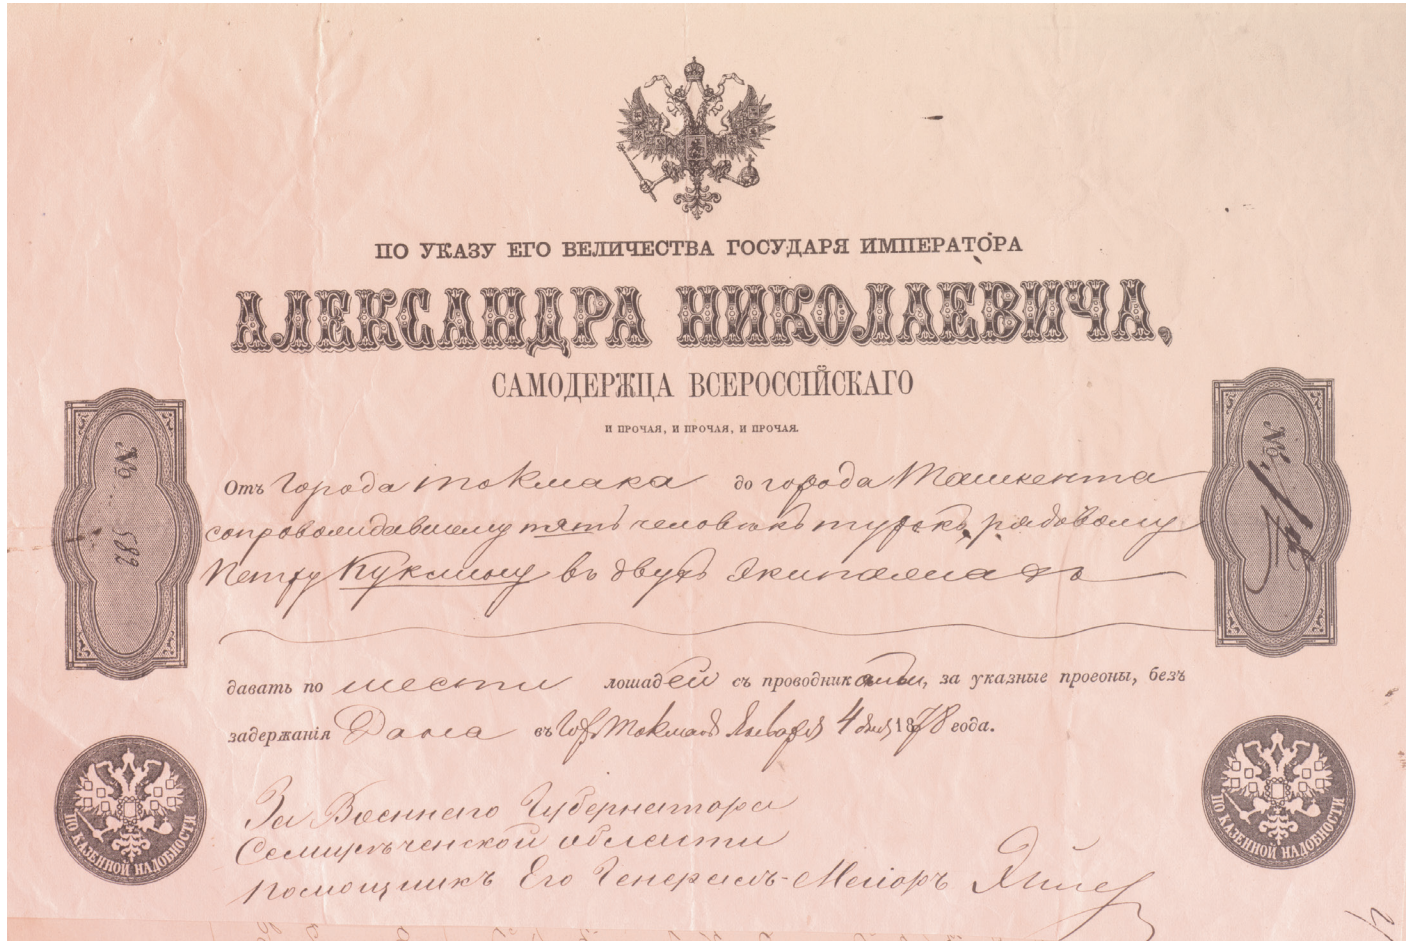 ПО УКАЗУ ЕГО ВЕЛИЧЕСТВА ГОСУДАРЯ ИМПЕРАТОРА
АЛЕКСАНДРА НИКОЛАЕВИЧА,
САМОДЕРЖЦА ВСЕРОССІЙСКАГО
И ПРОЧАЯ, И ПРОЧАЯ, И ПРОЧАЯ.
№ 582
№
Отъ города Токмака до города Ташкента
сопровождавшему пять человѣкъ турокъ, рядовому
Петру Кукмину въ двухъ экипажахъ
давать по шести лошадей съ проводниками, за указные прогоны, безъ
задержанія Дана въ гор. Токмакѣ Января 4 дня 1878 года.
За Военнаго Губернатора
Семирѣченской области
Помощникъ Его Генералъ-Маіоръ
ПО КАЗЕННОЙ НАДОБНОСТИ
ПО КАЗЕННОЙ НАДОБНОСТИ